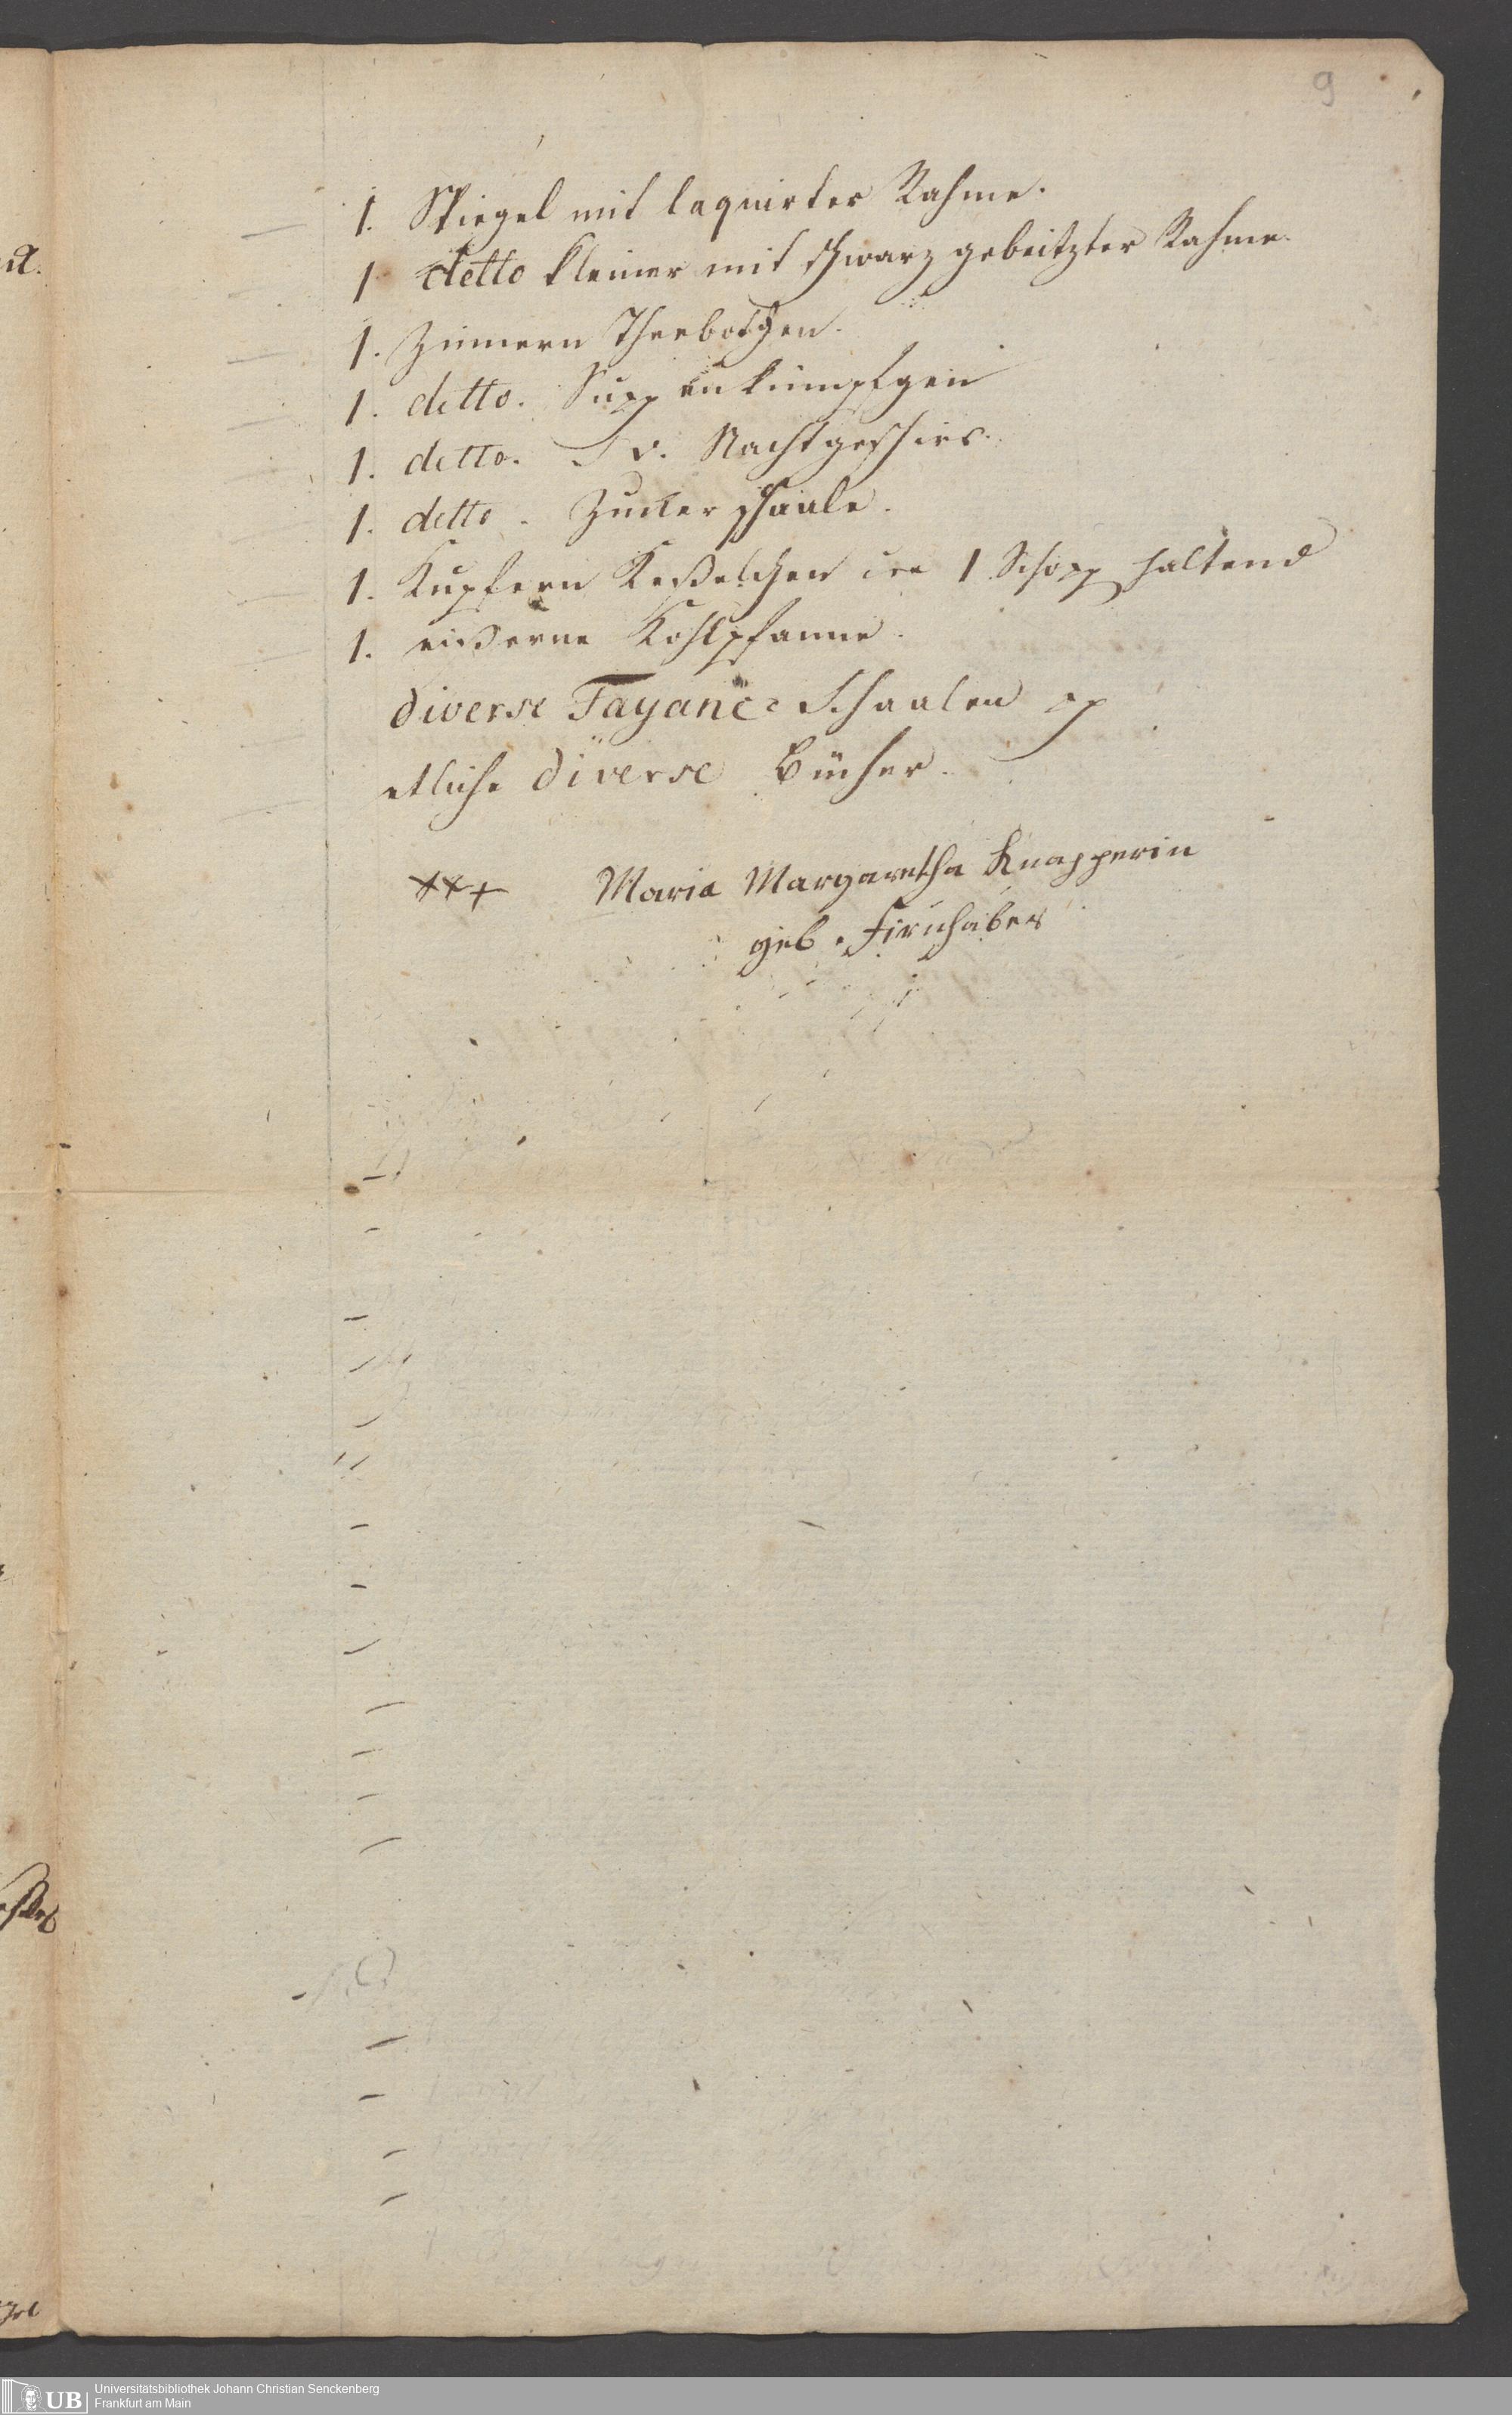 9
1. Spiegel mit laquirter Rahme.
1 detto kleiner mit schwarz gebeitzter Rahme.
1. Zinnern Theebotgen.
1. detto. Suppenkümpfgen
1. detto. S v. Nachtgeschirr.
1. detto. Zuckerschaale.
1. Kupfern Keßelchen 1 Schopp haltend
1. eißerne Kohlpfanne.
diverse Fayance Schaalen
etliche diverse Bücher.
+++ Maria Margaretha Knapperin
geb. Firnhaber
UB Universitätsbibliothek Johann Christian Senckenberg
Frankfurt am Main